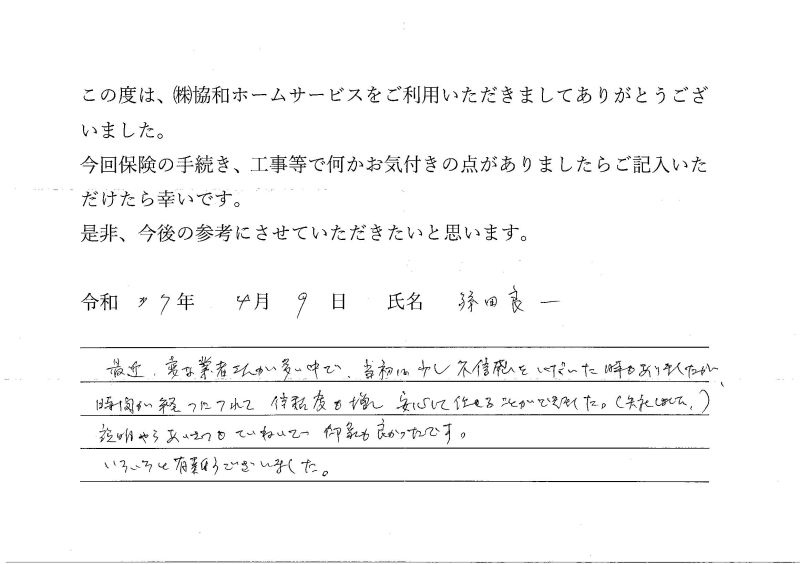 この度は、㈱協和ホームサービスをご利用いただきましてありがとうござ
いました。
今回保険の手続き、工事等で何かお気付きの点がありましたらご記入いた
だけたら幸いです。
是非、今後の参考にさせていただきたいと思います。
令和 7年 4月 9 日 氏名 田良一
最近、変な業者さんが多い中で、当初は少し不信感をいだいた時もありましたが、
時間が経つにつれて 信頼度も増し 安心して任せることができました。(失礼しました。)
説明やあいさつもていねいで 印象も良かったです。
いろいろと有難うございました。